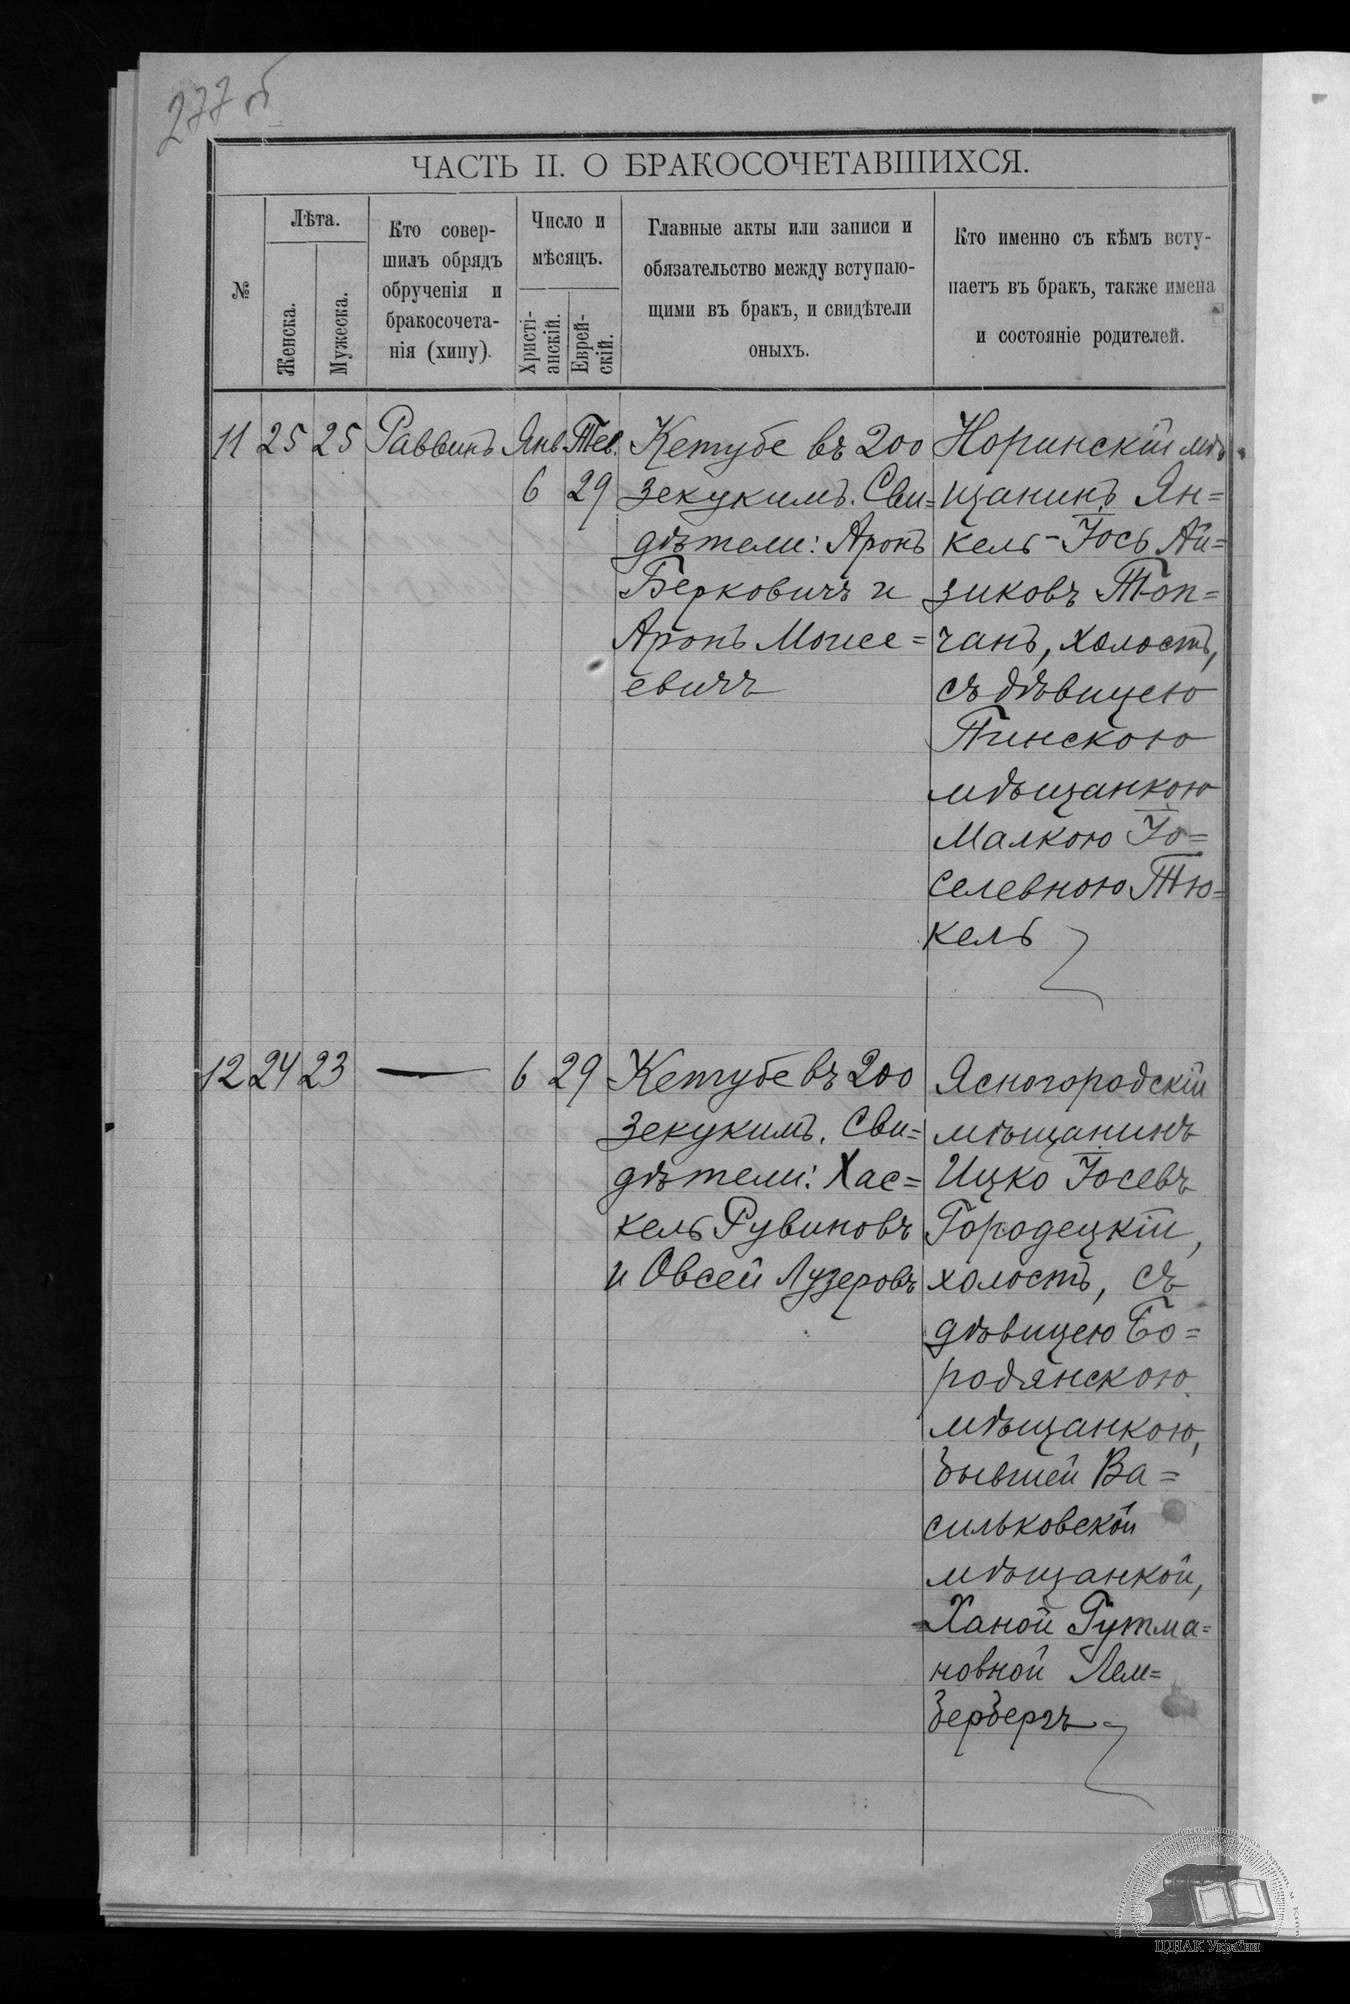 277 б
ЧАСТЬ II. О БРАКОСОЧЕТАВШИХСЯ.
№
Лѣта.
Женска.
Мужеска.
Кто совер-
шилъ обрядъ
обрученія и
бракосочета-
нія (хипу).
Число и
мѣсяцъ.
Христі-
анскій.
Еврей-
скій.
Главные акты или записи и
обязательство между вступаю-
щими въ бракъ, и свидѣтели
оныхъ.
Кто именно съ кѣмъ всту-
паетъ въ бракъ, также имена
и состояніе родителей.
11 25 25 Раввинъ Янв. Тев.
6 29
Кетубе въ 200
зекукимъ. Сви=
дѣтели: Аронъ
Берковичъ и
Аронъ Моисе=
евичъ
Норинскій мѣ-
щанинъ Ян=
кель-Іось Ай=
зиковъ Топ=
чанъ, холостъ,
съ дѣвицею
Пинскою
мѣщанкою
Малкою Іо=
селевною Тю=
кель
12 24 23 — 6 29
Кетубе въ 200
зекукимъ. Сви=
дѣтели: Хас=
кель Рувиновъ
и Овсей Лузеровъ
Ясногородскій
мѣщанинъ
Ицко Іосевъ
Городецкій,
холостъ, съ
дѣвицею Бо=
родянскою
мѣщанкою,
бывшей Ва=
сильковской
мѣщанкой,
Ханой Гутма=
новной Лем=
бербергъ
ЦДІАК України